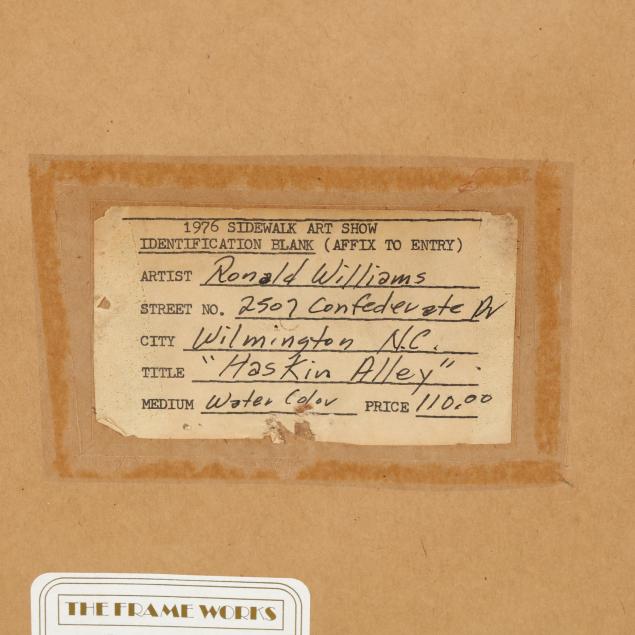 1976 SIDEWALK ART SHOW
IDENTIFICATION BLANK (AFFIX TO ENTRY)
ARTIST Ronald Williams
STREET NO. 2507 Confederate Dr
CITY Wilmington N.C.
TITLE "Haskin Alley"
MEDIUM Water Color PRICE 110.00
THE FRAME WORKS